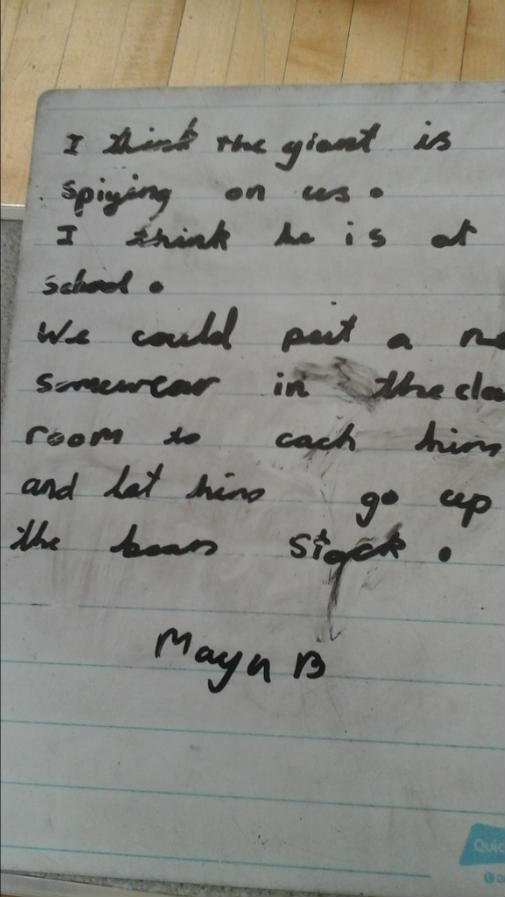 I think the giant is
spiying on us.
I think he is at
school.
We could put a
somewear in the
room to cach him
and let him go up
the bean stack.
Maya B
Quic